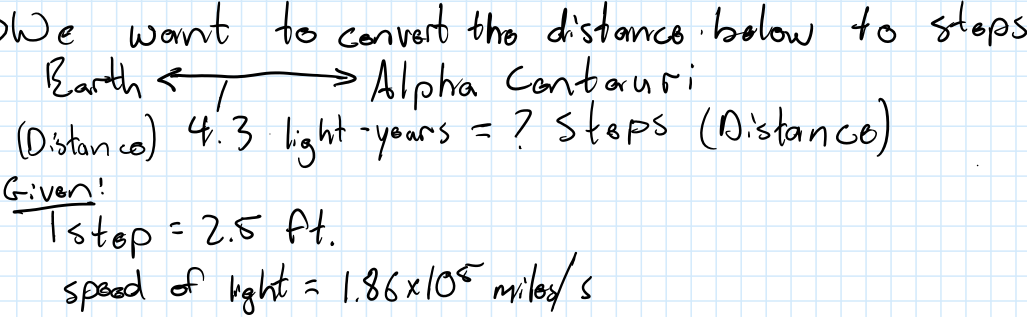 We want to convert the distance below to steps
Earth ↔ Alpha Centauri
(Distance) 4.3 light-years = ? steps (Distance)
Given:
1 step = 2.5 ft.
speed of light = 1.86x10⁵ miles/s